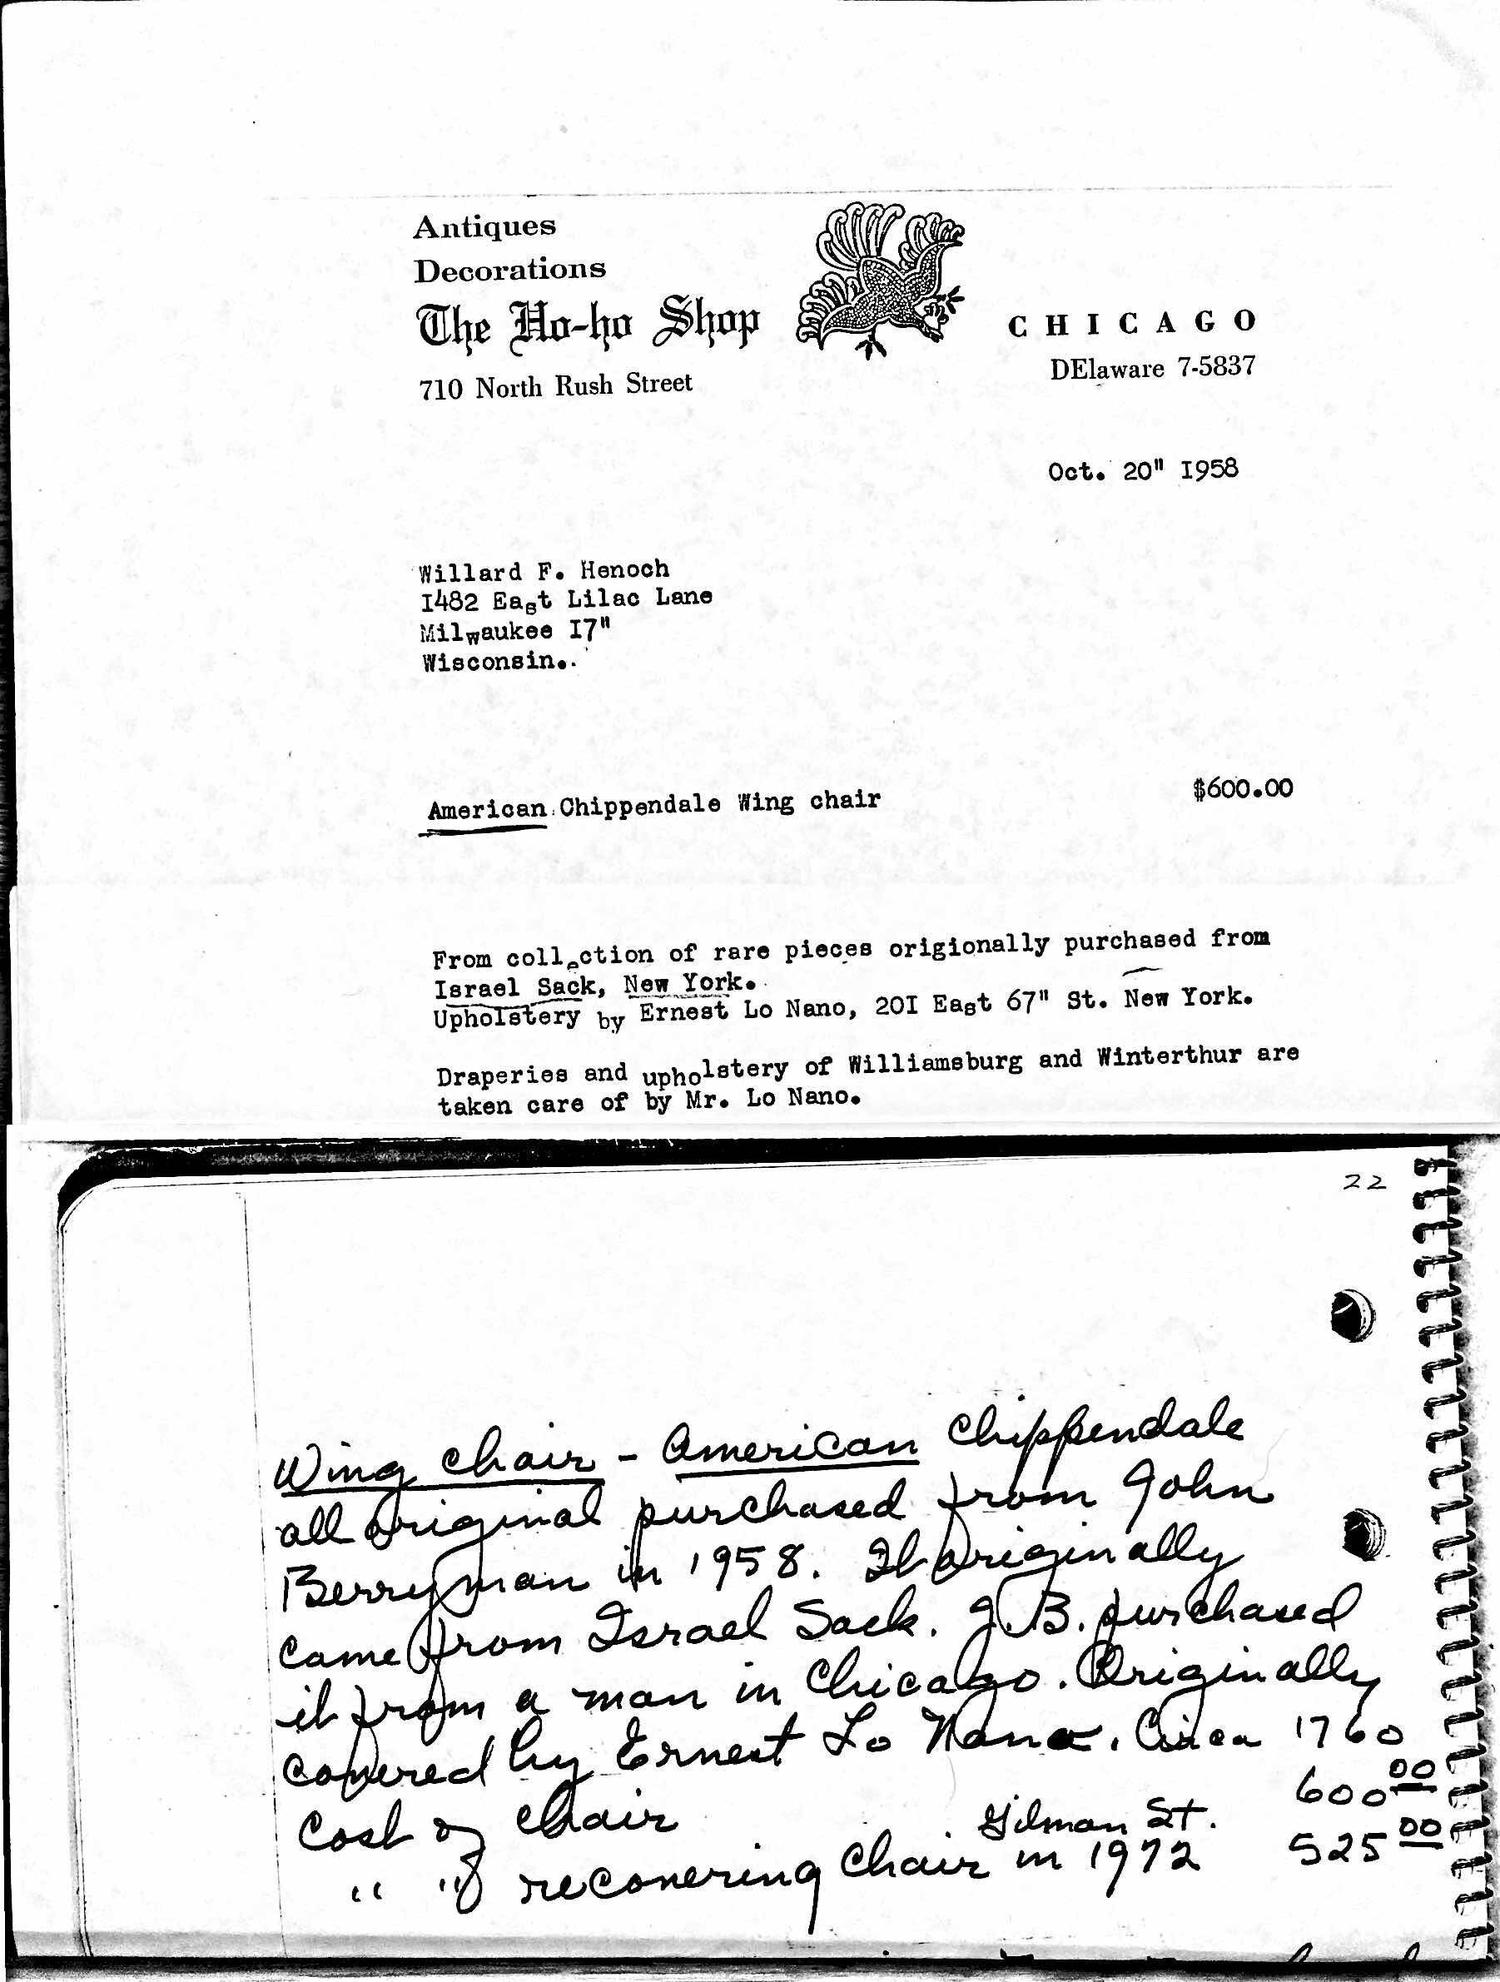 Antiques
Decorations
The Ho-ho Shop
710 North Rush Street
CHICAGO
DElaware 7-5837
Oct. 20" I958
Willard F. Henoch
I482 East Lilac Lane
Milwaukee I7"
Wisconsin..
American Chippendale Wing chair $600.00
From collection of rare pieces origionally purchased from
Israel Sack, New York.
Upholstery by Ernest Lo Nano, 20I East 67" St. New York.
Draperies and upholstery of Williamsburg and Winterthur are
taken care of by Mr. Lo Nano.
22
Wing chair - American Chippendale
all original purchased from John
Berryman in 1958. It originally
came from Israel Sack. J.B. purchased
it from a man in Chicago. Originally
covered by Ernest Lo Nano. Circa 1760
Cost of chair 600 00
" " of recovering chair in 1972 Gilman St. 525 00